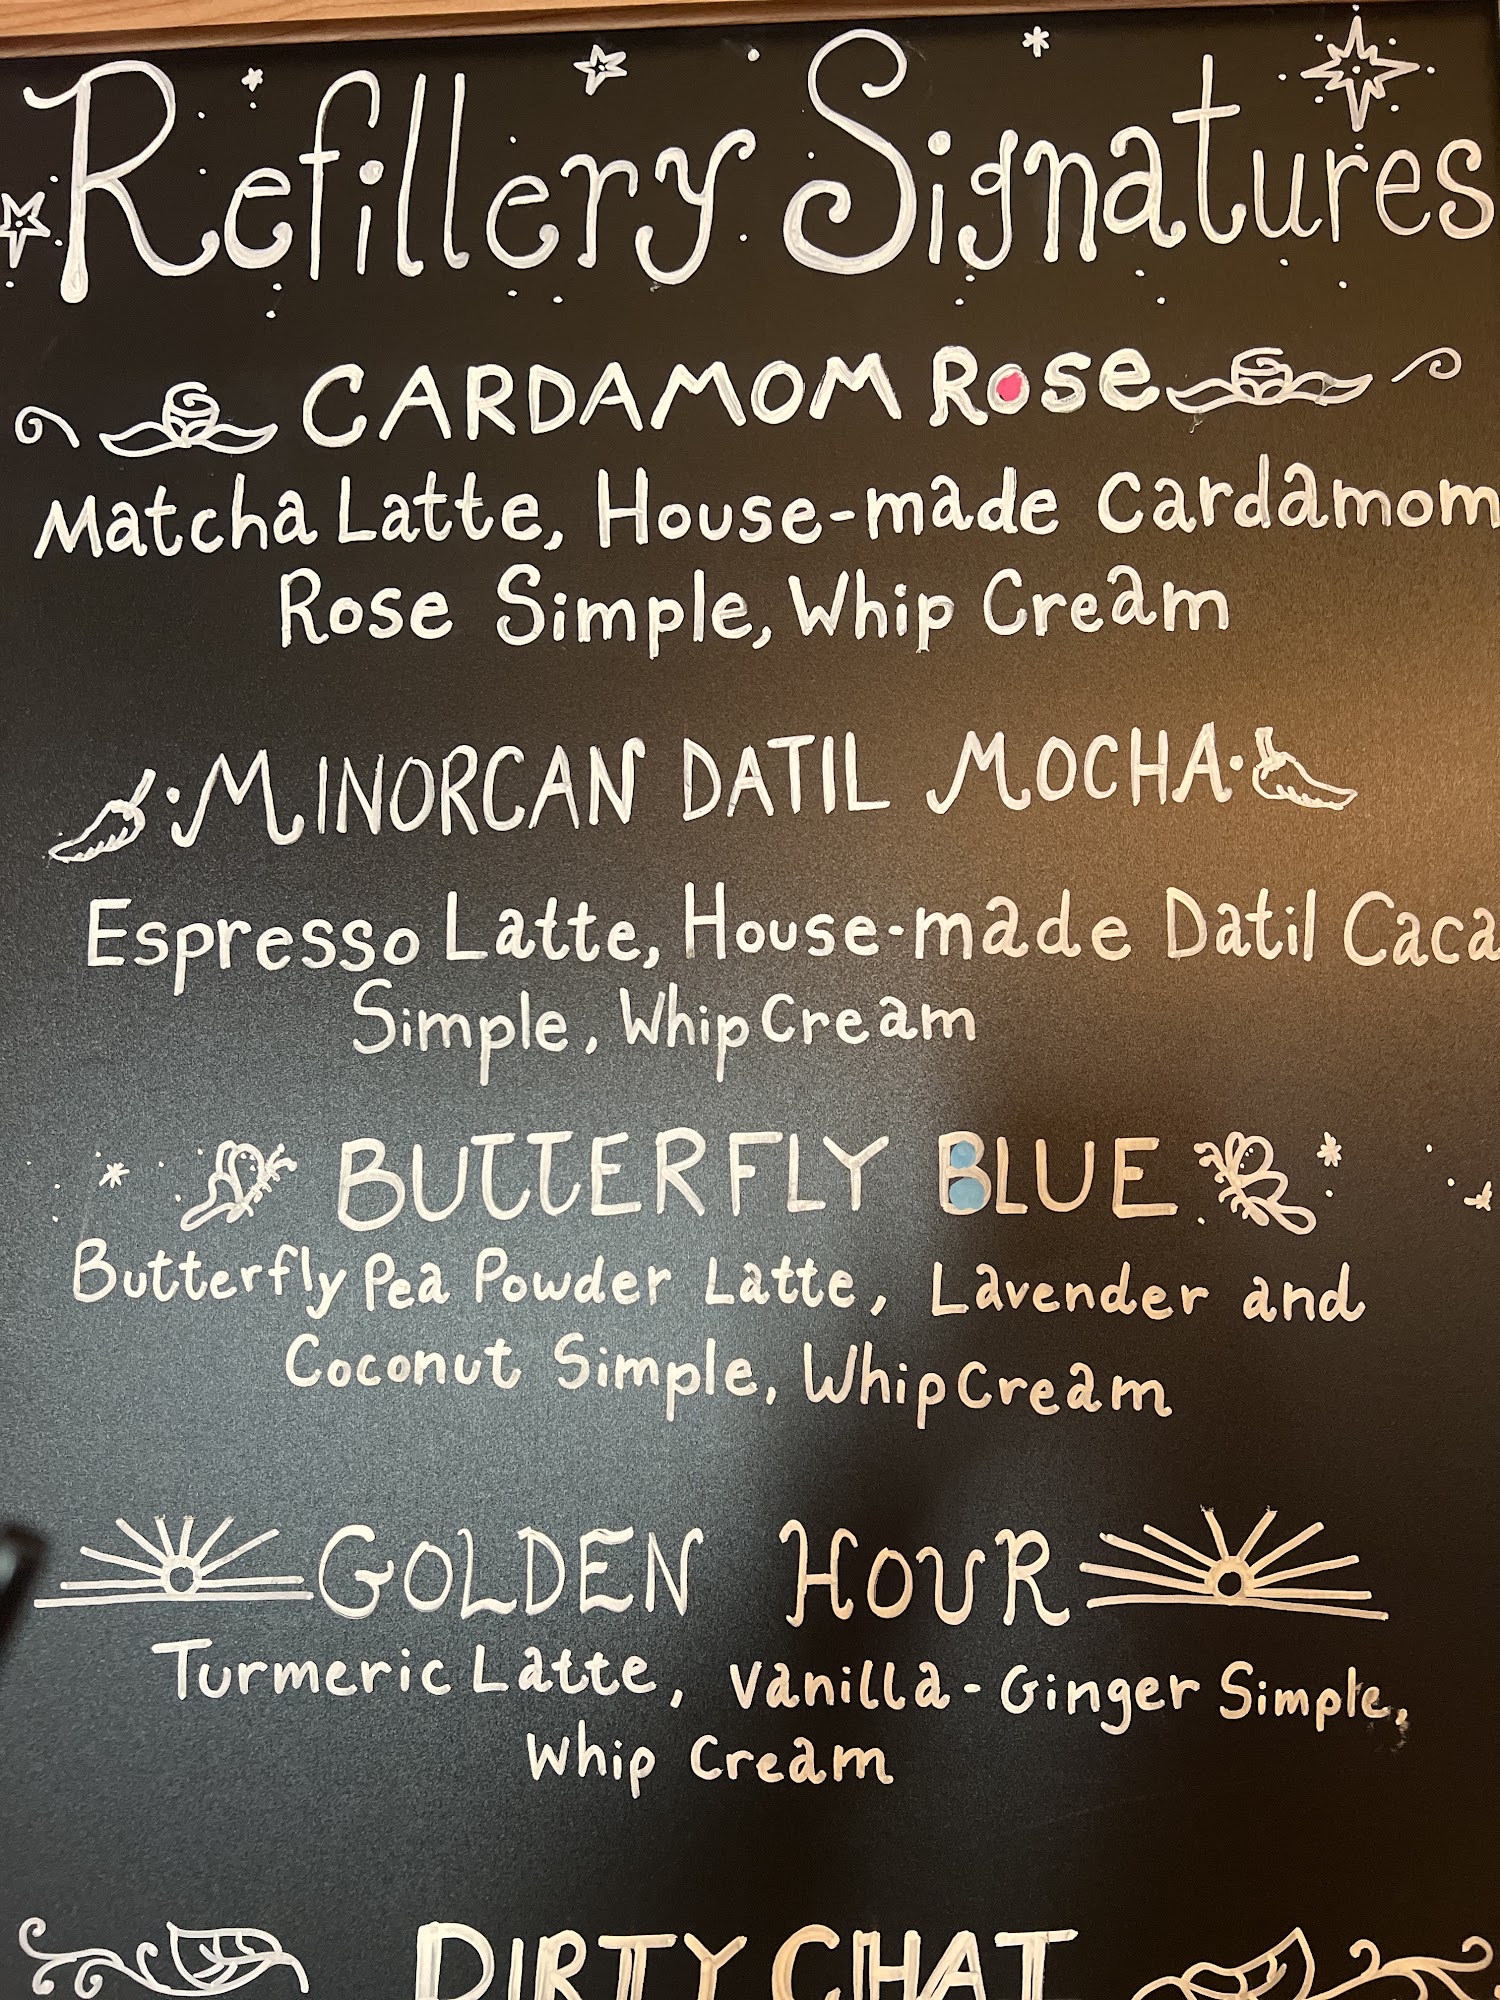 Refillery Signatures
CARDAMOM ROSE
Matcha Latte, House-made Cardamom
Rose Simple, Whip Cream
MINORCAN DATIL MOCHA
Espresso Latte, House-made Datil Caca
Simple, Whip Cream
BUTTERFLY BLUE
Butterfly Pea Powder Latte, Lavender and
Coconut Simple, Whip Cream
GOLDEN HOUR
Turmeric Latte, Vanilla-Ginger Simple,
Whip Cream
DIRTY CHAT